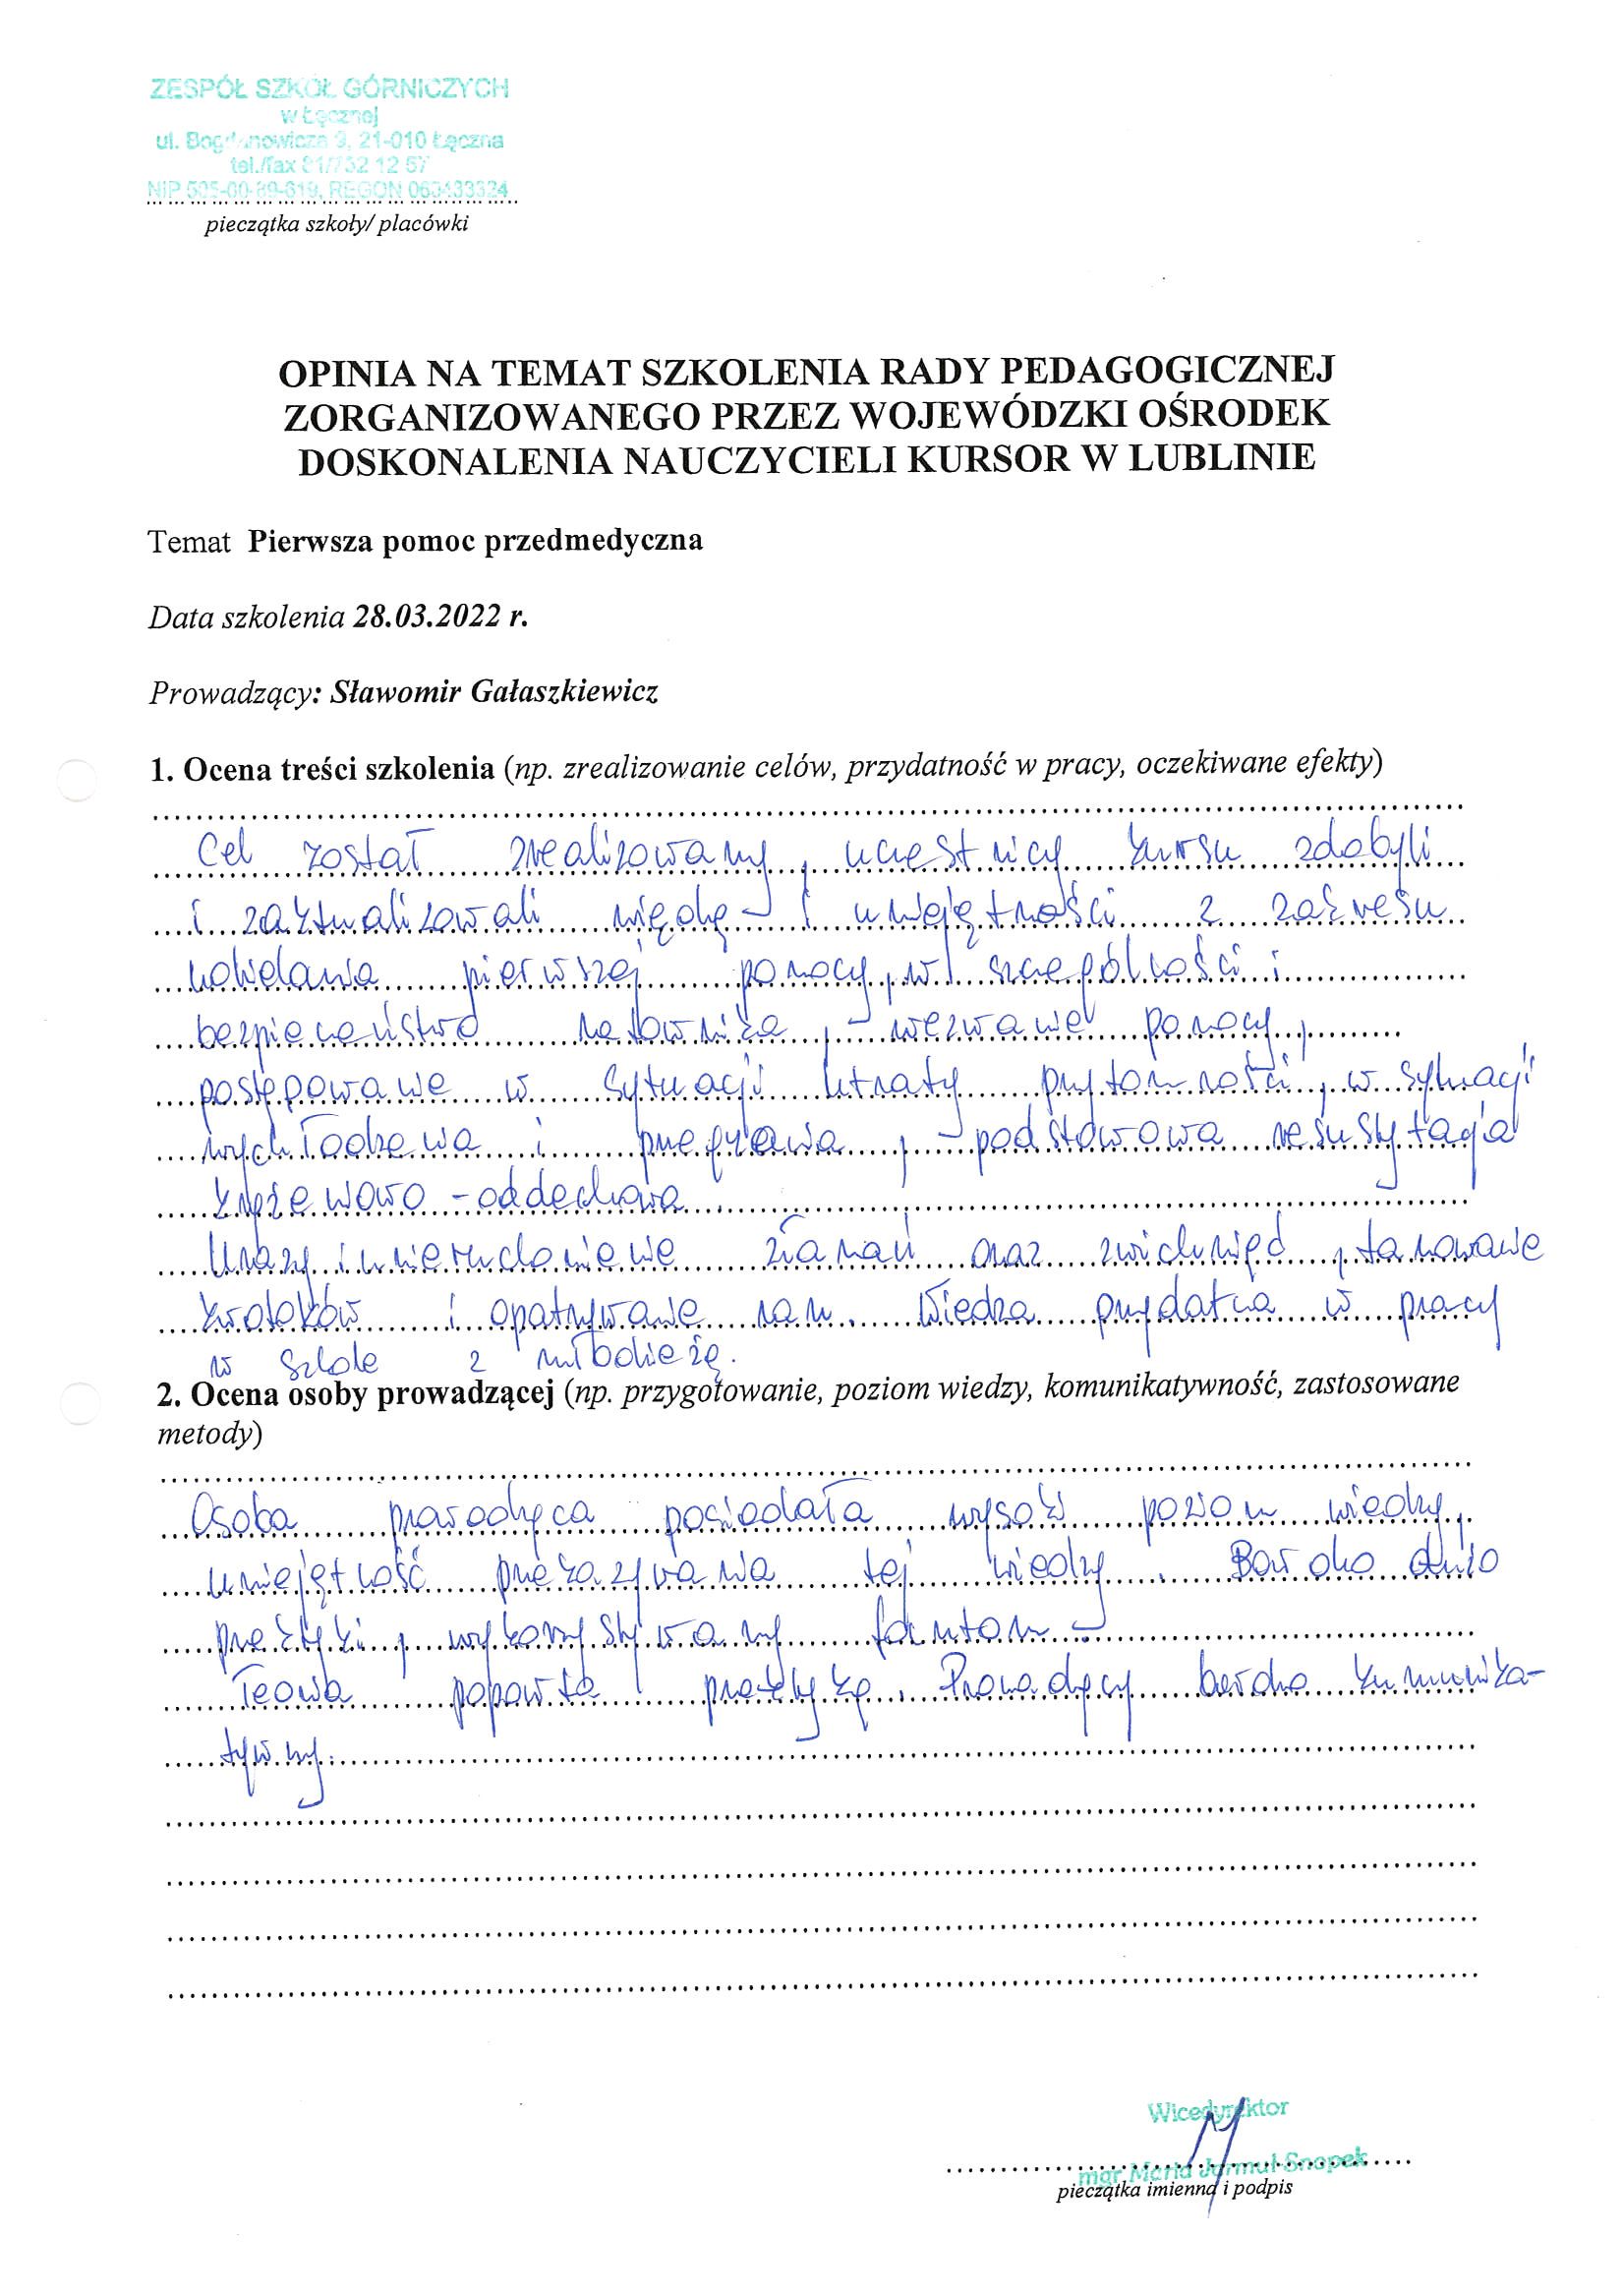 ZESPÓŁ SZKÓŁ GÓRNICZYCH
w Łęcznej
ul. Bogdanowicza 9, 21-010 Łęczna
tel./fax 81/752 12 57
NIP REGON
pieczątka szkoły/ placówki
OPINIA NA TEMAT SZKOLENIA RADY PEDAGOGICZNEJ
ZORGANIZOWANEGO PRZEZ WOJEWÓDZKI OŚRODEK
DOSKONALENIA NAUCZYCIELI KURSOR W LUBLINIE
Temat Pierwsza pomoc przedmedyczna
Data szkolenia 28.03.2022 r.
Prowadzący: Sławomir Gałaszkiewicz
1. Ocena treści szkolenia (np. zrealizowanie celów, przydatność w pracy, oczekiwane efekty)
Cel został zrealizowany, uczestnicy kursu zdobyli
i zaktualizowali wiedzę i umiejętności z zakresu
udzielania pierwszej pomocy, w szczególności:
bezpieczeństwo ratownika, wezwanie pomocy,
postępowanie w sytuacji utraty przytomności, w sytuacji
wychłodzenia i przegrzania, podstawowa resuscytacja
krążeniowo-oddechowa
Urazy, unieruchomienie złamań oraz zwichnięć, tamowanie
krwotoków i opatrywanie ran. Wiedza przydatna w pracy
w szkole z młodzieżą.
2. Ocena osoby prowadzącej (np. przygotowanie, poziom wiedzy, komunikatywność, zastosowane
metody)
Osoba prowadząca posiadała wysoki poziom wiedzy,
umiejętność przekazywania tej wiedzy. Bardzo dużo
praktyki, wykorzystywany fantom -
Teoria poparta praktyką. Prowadzący bardzo komunika-
tywny.
Wicedyrektor
mgr Maria Jarmuł-Snopek
pieczątka imienna i podpis